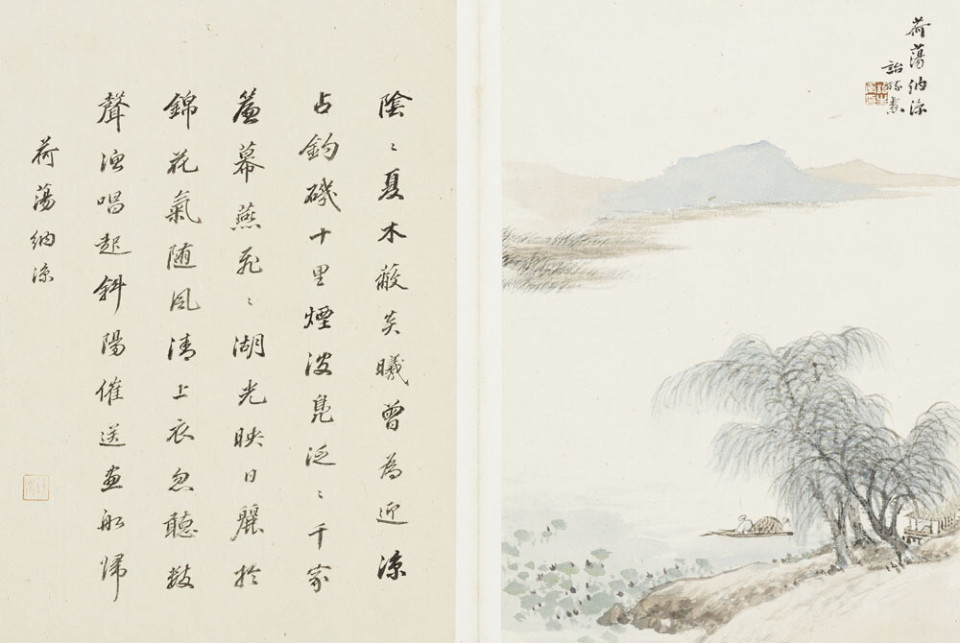 荷蕩納涼
陰〻夏木蔽炎曦曾為迎涼
占釣磯十里煙波鳧泛〻千家
簾幕燕飛〻湖光映日麗於
錦花氣随風清上衣忽聽數
聲漁唱起斜陽催送畫船歸
荷蕩納涼